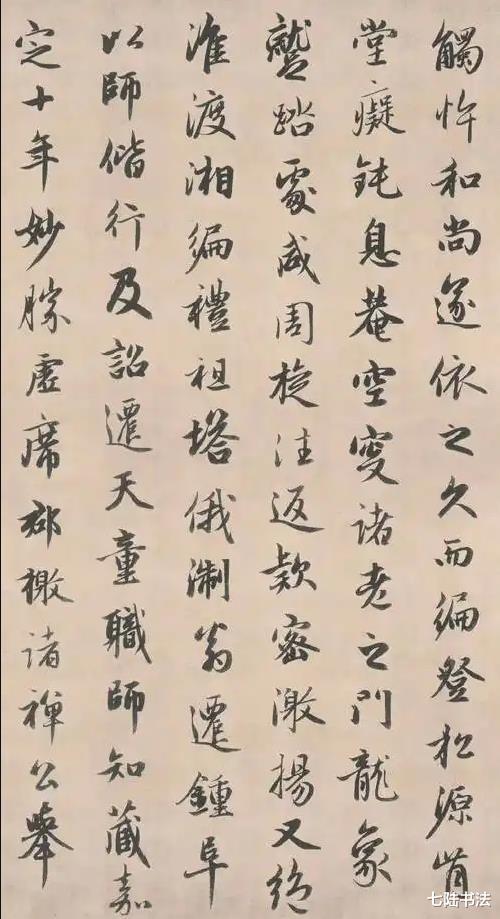 觸忤和尚遂依之久而徧登松源肯
堂癡鈍息菴空叟諸老之門龍象
蹵踏處咸周旋往返欵密激揚又絶
淮渡湘徧禮祖塔俄淛翁遷鍾阜
以師偕行及詔遷天童職師知藏嘉
定十年妙勝虛席郡檄諸禪公舉
七陆书法